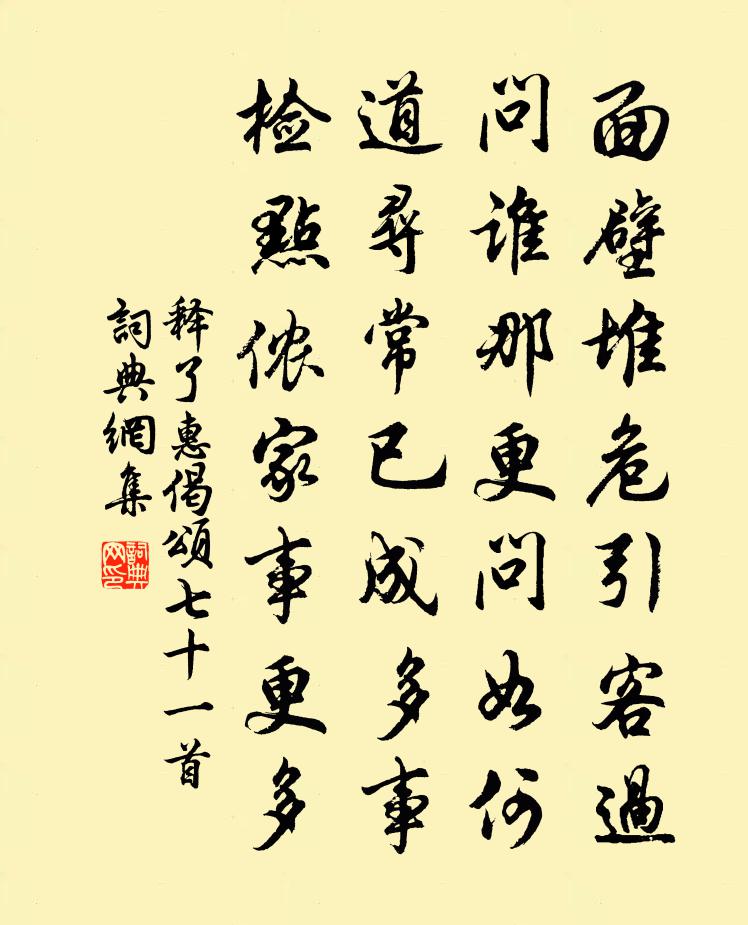 面壁堆危引客過
問谁那更問如何
道尋常已成多事
检點侬家事更多
释了惠偈頌七十一首
詞典網集
詞典网印